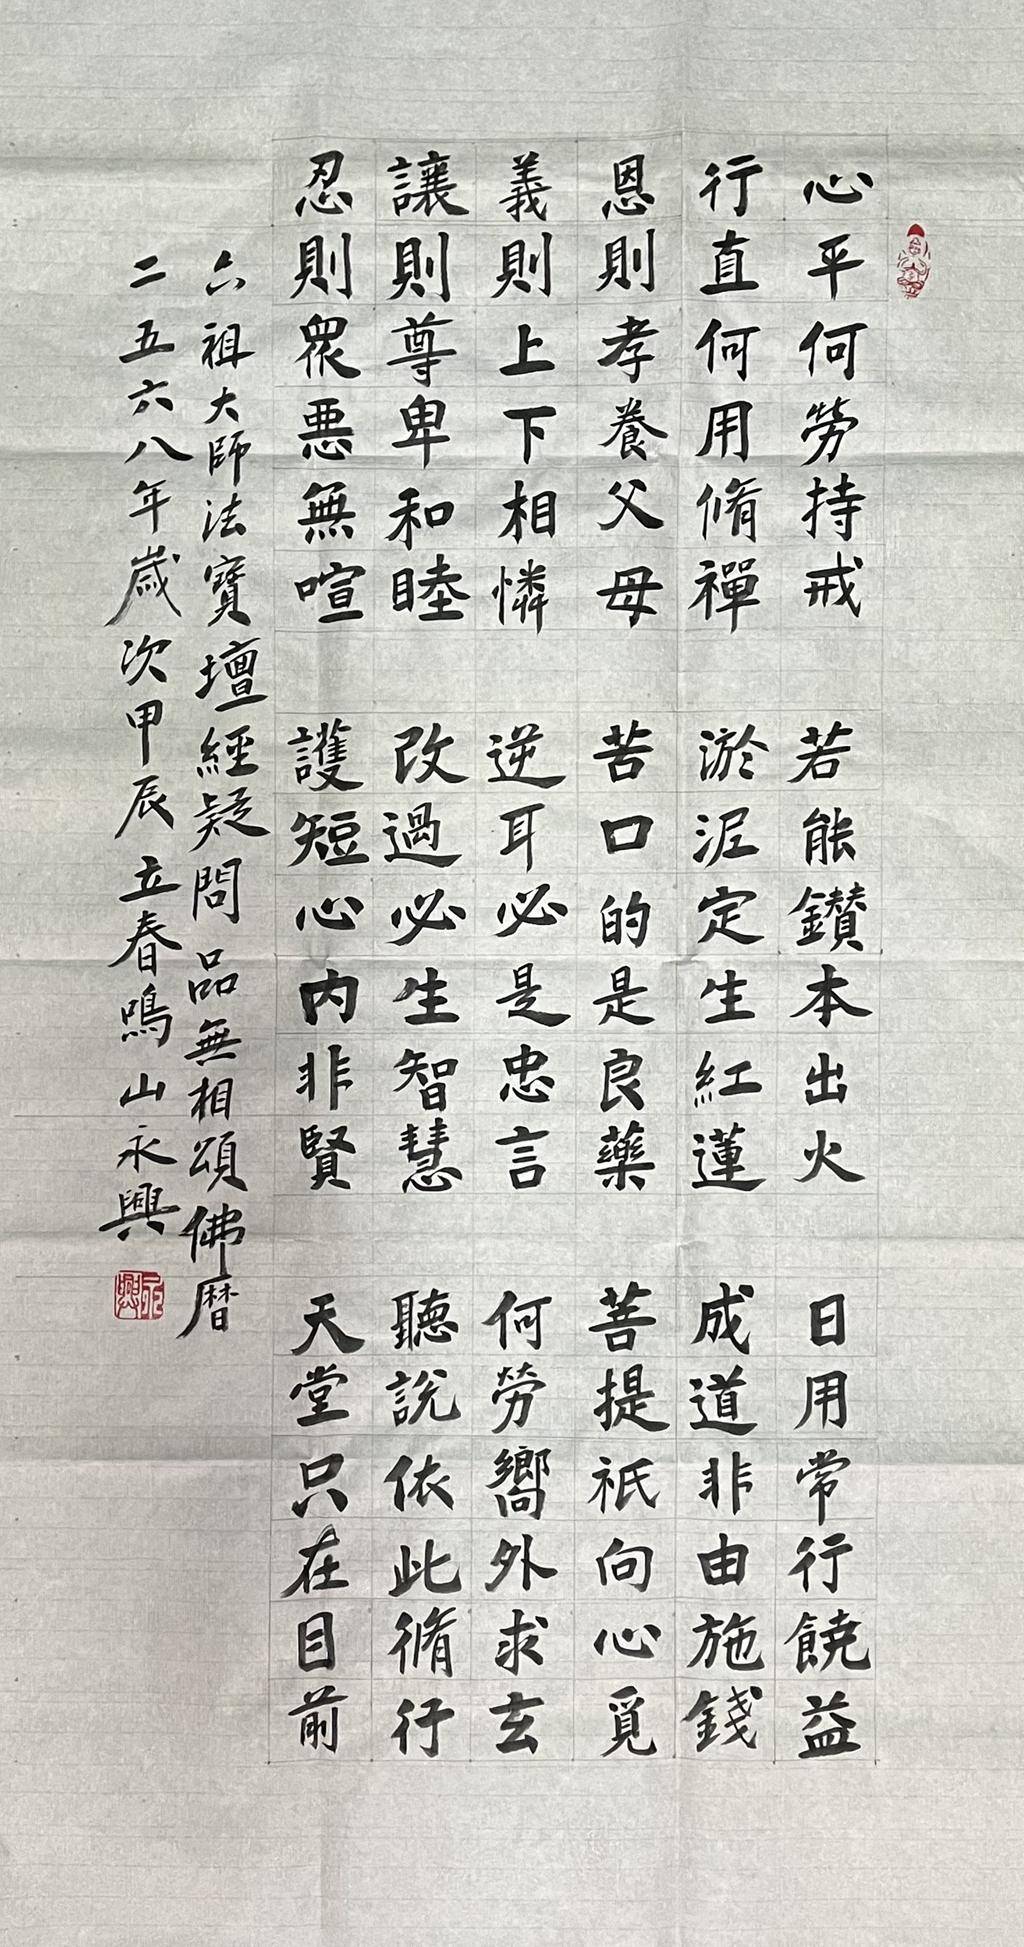 心平何勞持戒
行直何用脩禪
恩則孝養父母
義則上下相憐
讓則尊卑和睦
忍則眾悪無喧
若能鑚本出火
淤泥定生紅蓮
苦口的是良藥
逆耳必是忠言
改過必生智慧
護短心内非賢
日用常行饒益
成道非由施錢
菩提祇向心覓
何勞嚮外求玄
聽說依此脩行
天堂只在目前
六祖大師法寶壇經疑問品無相頌佛暦
二五六八年歲次甲辰立春鳴山永興
永興